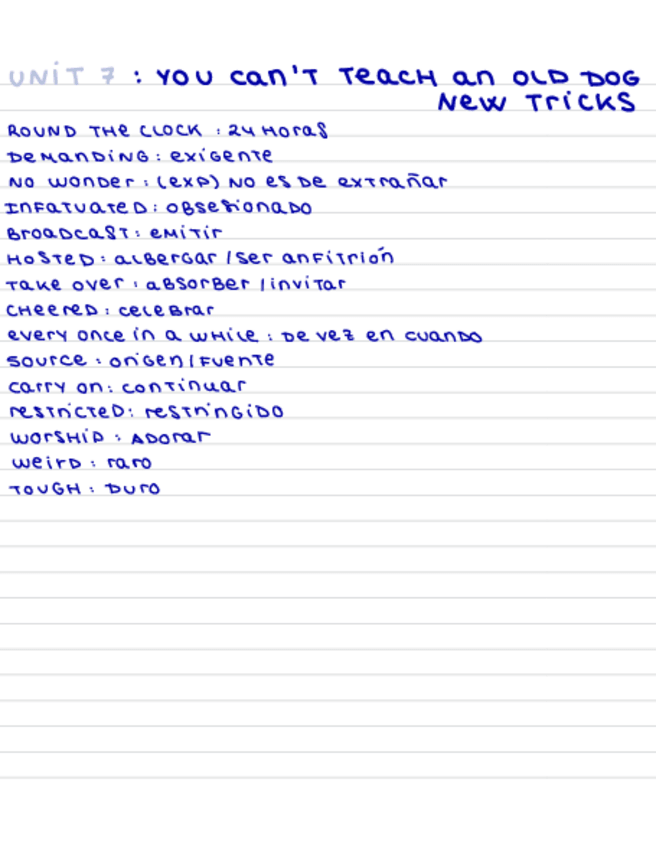 UNIT 7 : YOU CAN'T TEACH AN OLD DOG
NEW TRICKS
ROUND THE CLOCK : 24 HORAS
DEMANDING : EXIGENTE
NO WONDER : (EXP) NO ES DE EXTRAÑAR
INFATUATED : OBSESIONADO
BROADCAST : EMITIR
HOSTED : ALBERGAR / SER ANFITRIÓN
TAKE OVER : ABSORBER / INVITAR
CHEERED : CELEBRAR
EVERY ONCE IN A WHILE : DE VEZ EN CUANDO
SOURCE : ORIGEN / FUENTE
CARRY ON : CONTINUAR
RESTRICTED : RESTRINGIDO
WORSHIP : ADORAR
WEIRD : RARO
TOUGH : DURO